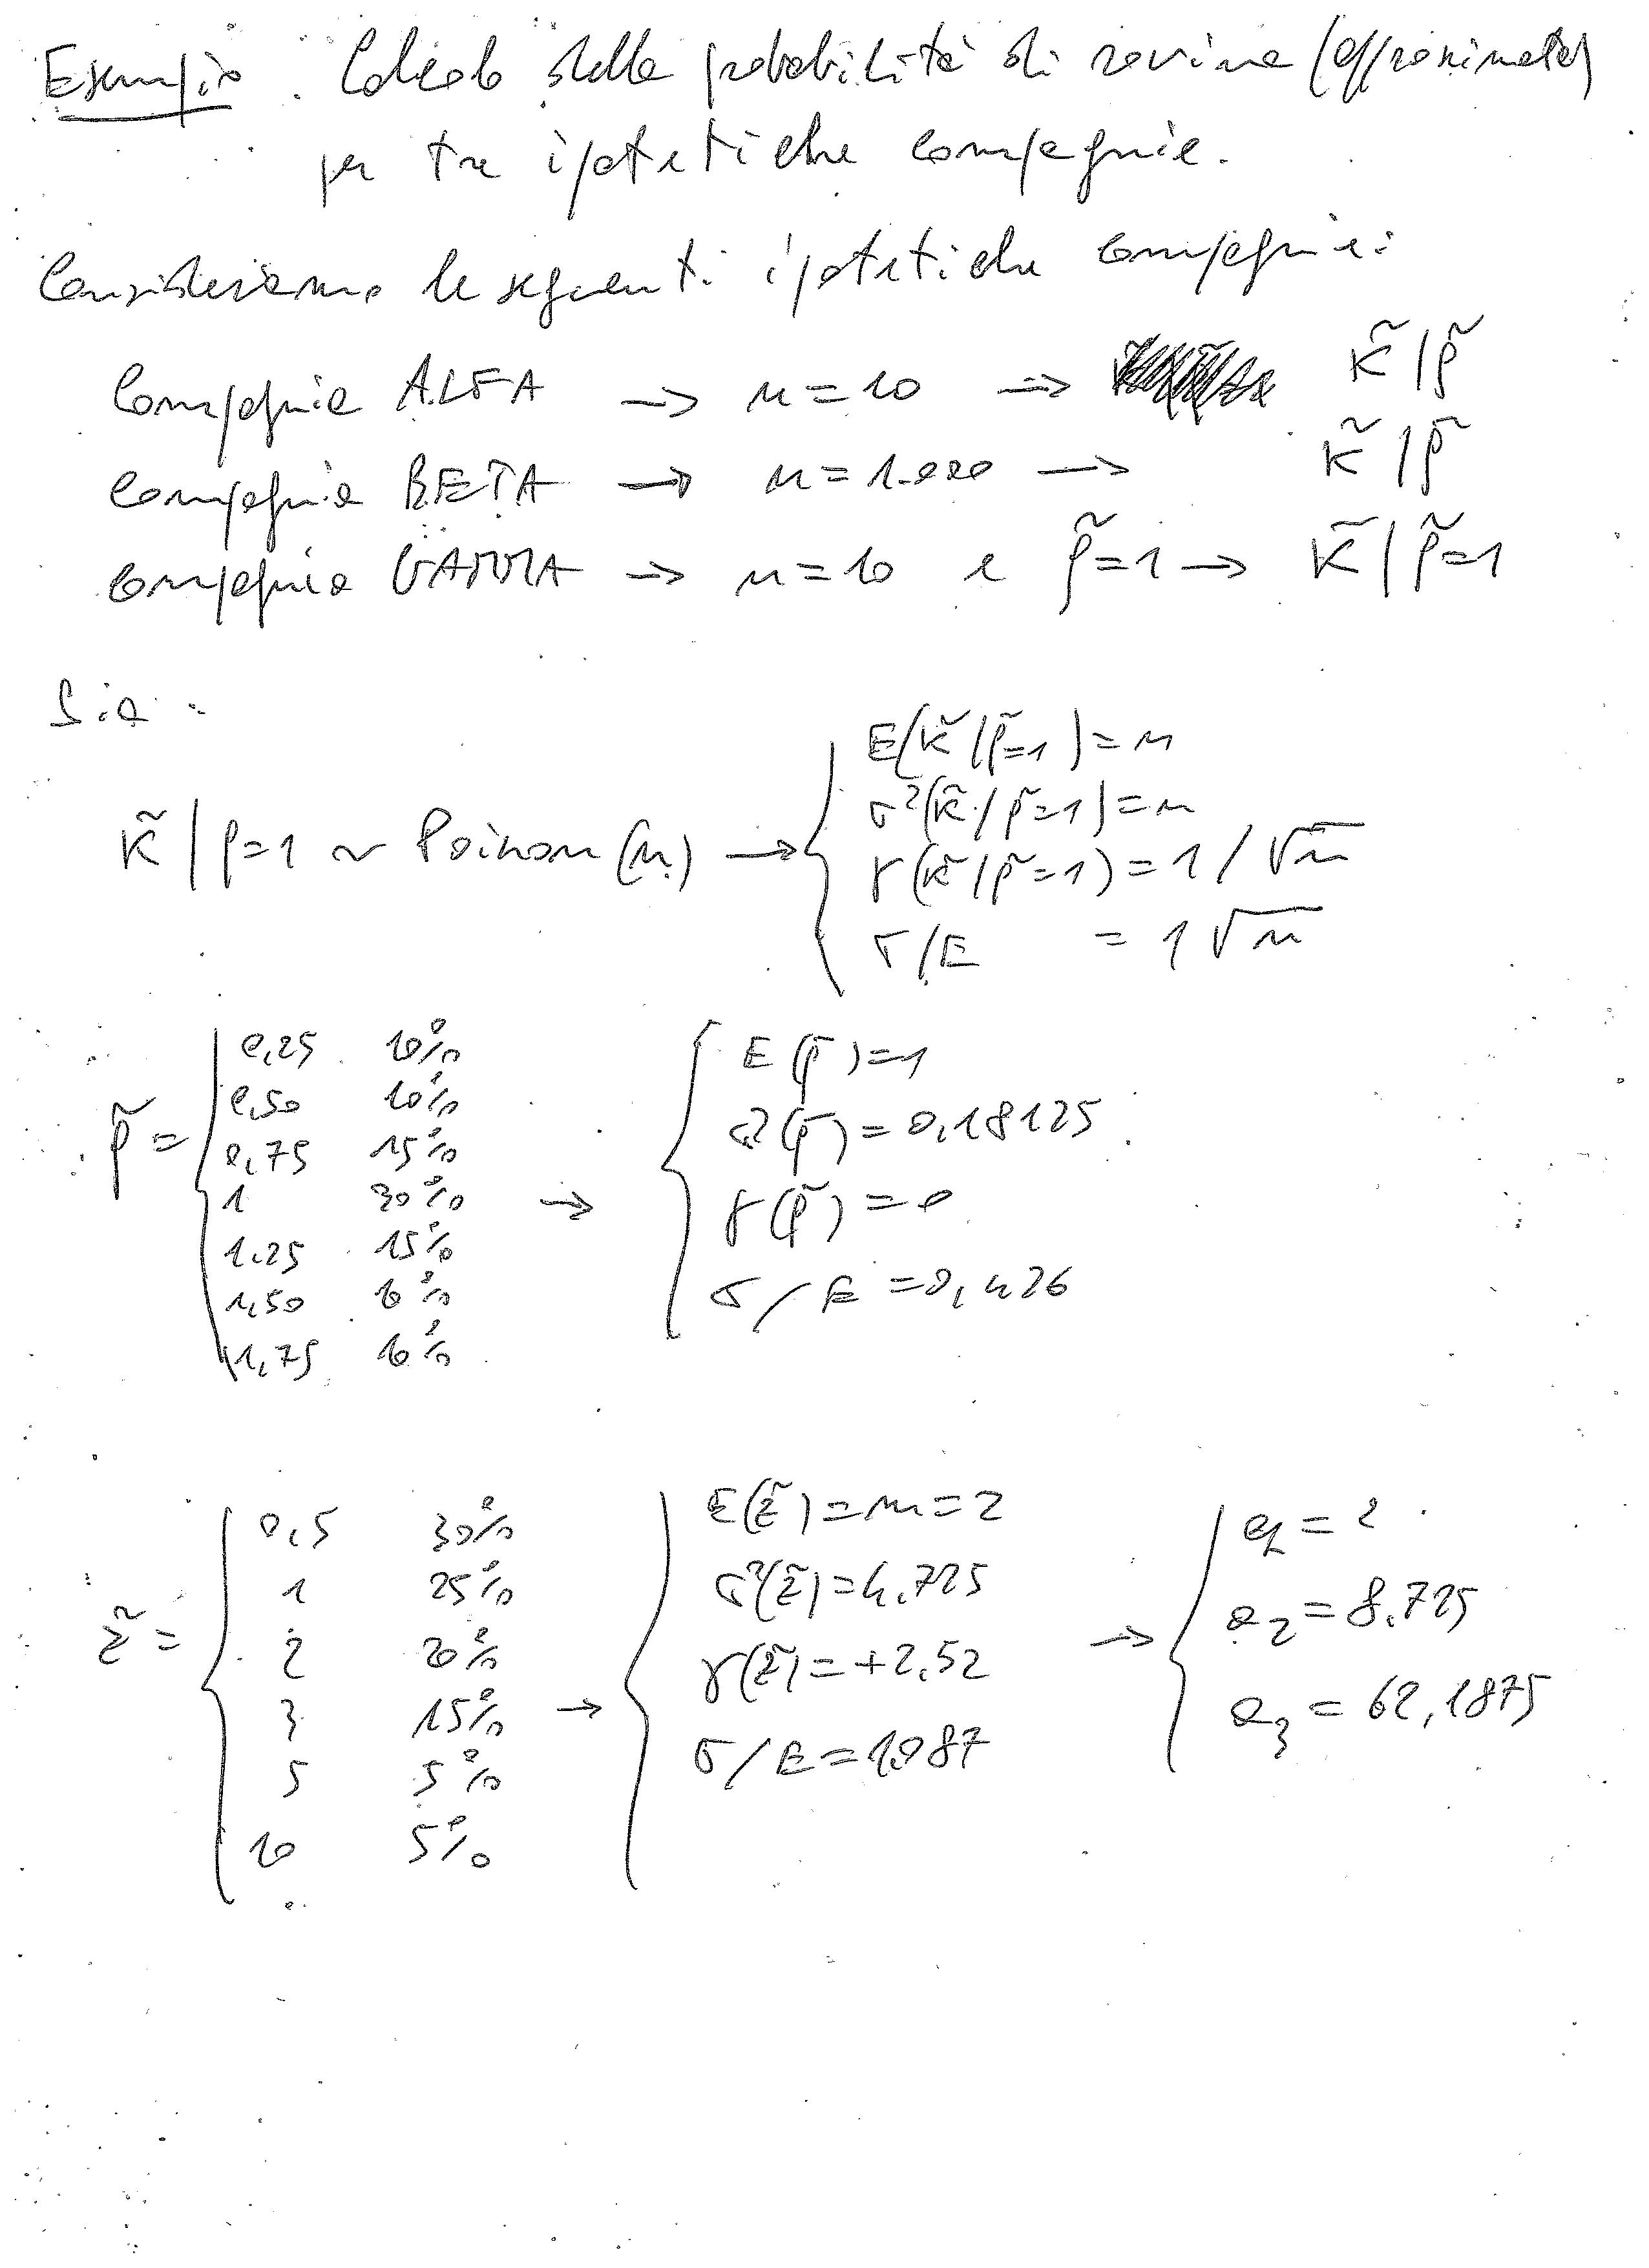 Esempio. Calcolo della probabilità di rovina (approssimata)
per tre ipotetiche compagnie.
Consideriamo le seguenti ipotetiche compagnie:
Compagnia ALFA → n = 10 → K̃ | ρ̃
Compagnia BETA → n = 1.000 → K̃ | ρ̃
Compagnia GAMMA → n = 10 e ρ̃ = 1 → K̃ | ρ̃ = 1
Sia:
K̃ | ρ = 1 ~ Poisson (n) →
E(K̃ | ρ̃=1) = n
σ²(K̃ | ρ̃=1) = n
γ(K̃ | ρ̃=1) = 1 / √n
σ/E = 1 √n
ρ̃ =
0,25 10%
0,50 10%
0,75 15%
1 30%
1.25 15%
1,50 10%
1,75 10%
→
E(ρ̃) = 1
σ²(ρ̃) = 0,18125
γ(ρ̃) = 0
σ/E = 0,426
z̃ =
0,5 30%
1 25%
2 20%
3 15%
5 5%
10 5%
→
E(z̃) = m = 2
σ²(z̃) = 4.725
γ(z̃) = +2,52
σ/E = 1,087
→
a₁ = 2
a₂ = 8.725
a₃ = 62,1875